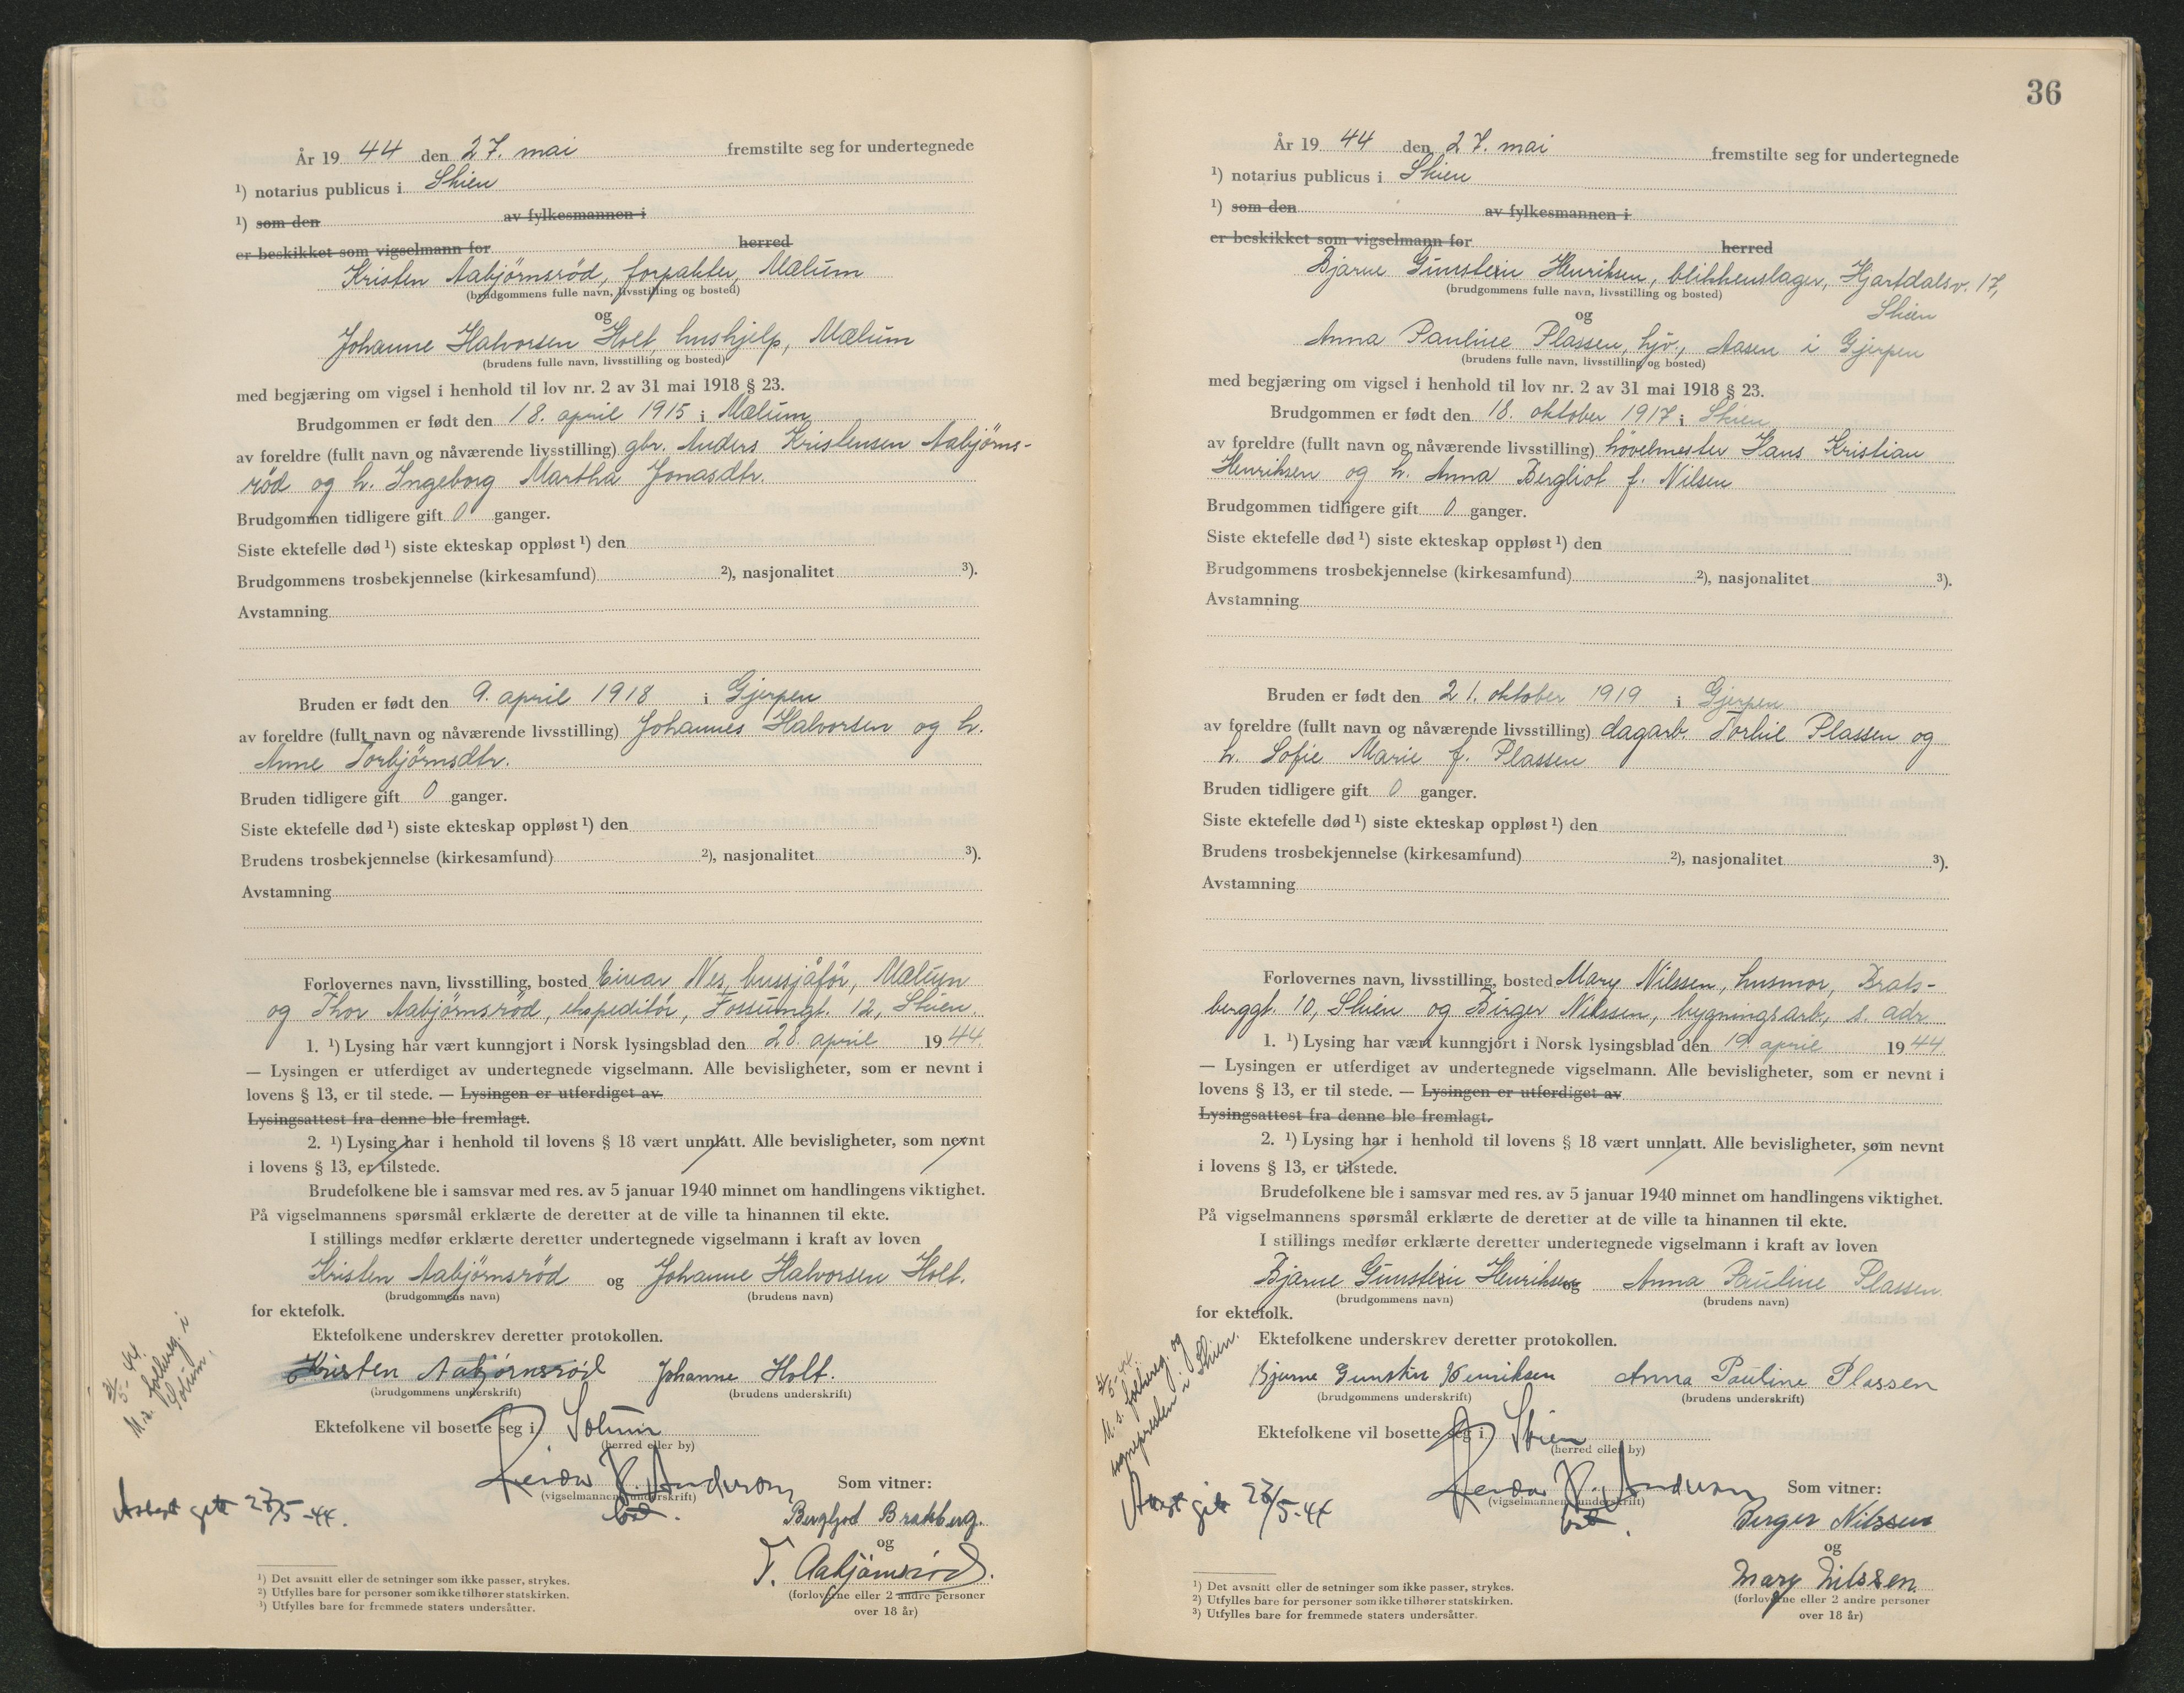 År 19 44 den 27. mai fremstilte seg for undertegnede
¹) notarius publicus i Skien
¹) som den av fylkesmannen i
er beskikket som vigselmann for herred
Kristen Aabjörnsröd, forpakter, Mælum
(brudgommens fulle navn, livsstilling og bosted)
og
Johanne Halvorsen Holt, hushjelp, Mælum
(brudens fulle navn, livsstilling og bosted)
med begjæring om vigsel i henhold til lov nr. 2 av 31 mai 1918 § 23.
Brudgommen er født den 18. april 1915 i Mælum
av foreldre (fullt navn og nåværende livsstilling) gbr. Anders Kristensen Aabjörns-
röd og h. Ingeborg Martha Jonasdtr.
Brudgommen tidligere gift 0 ganger.
Siste ektefelle død ¹) siste ekteskap oppløst ¹) den
Brudgommens trosbekjennelse (kirkesamfund) ²), nasjonalitet ³).
Avstamning
Bruden er født den 9. april 1918 i Gjerpen
av foreldre (fullt navn og nåværende livsstilling) Johannes Halvorsen og h.
Anne Torbjörnsdtr.
Bruden tidligere gift 0 ganger.
Siste ektefelle død ¹) siste ekteskap oppløst ¹) den
Brudens trosbekjennelse (kirkesamfund) ²), nasjonalitet ³).
Avstamning
Forlovernes navn, livsstilling, bosted Einar Nes, bussjåför, Mælum
og Thor Aabjörnsröd, ekspeditör, Fossumgt. 12, Skien.
1. ¹) Lysing har vært kunngjort i Norsk lysingsblad den 28. april 19 44.
— Lysingen er utferdiget av undertegnede vigselmann. Alle bevisligheter, som er nevnt i
lovens § 13, er til stede. — Lysingen er utferdiget av
Lysingsattest fra denne ble fremlagt.
2. ¹) Lysing har i henhold til lovens § 18 vært unnlatt. Alle bevisligheter, som nevnt
i lovens § 13, er tilstede.
Brudefolkene ble i samsvar med res. av 5 januar 1940 minnet om handlingens viktighet.
På vigselmannens spørsmål erklærte de deretter at de ville ta hinannen til ekte.
I stillings medfør erklærte deretter undertegnede vigselmann i kraft av loven
Kristen Aabjörnsröd og Johanne Halvorsen Holt.
(brudgommens navn) (brudens navn)
for ektefolk.
Ektefolkene underskrev deretter protokollen.
Kristen Aabjörnsröd Johanne Holt.
(brudgommens underskrift) (brudens underskrift)
Ektefolkene vil bosette seg i Solum
(herred eller by)
Andersen
(vigselmannens underskrift)
Som vitner:
Bergljod Brakberg.
og
T. Aabjørnsrød.
(forloverne eller 2 andre personer
over 18 år)
3/5-44.
M. s. folkereg. i
Solum.
Attest gitt 27/5-44.
¹) Det avsnitt eller de setninger som ikke passer, strykes.
²) Utfylles bare for personer som ikke tilhører statskirken.
³) Utfylles bare for fremmede staters undersåtter.
36
År 19 44 den 27. mai fremstilte seg for undertegnede
¹) notarius publicus i Skien
¹) som den av fylkesmannen i
er beskikket som vigselmann for herred
Bjarne Gunstein Henriksen, blikkenslager, Hjartdalsv. 17,
(brudgommens fulle navn, livsstilling og bosted)
Skien
og
Anna Pauline Plassen, hjv., Aasen i Gjerpen
(brudens fulle navn, livsstilling og bosted)
med begjæring om vigsel i henhold til lov nr. 2 av 31 mai 1918 § 23.
Brudgommen er født den 18. oktober 1917 i Skien
av foreldre (fullt navn og nåværende livsstilling) hövelmester Hans Kristian
Henriksen og h. Anna Bergliot f. Nilsen
Brudgommen tidligere gift 0 ganger.
Siste ektefelle død ¹) siste ekteskap oppløst ¹) den
Brudgommens trosbekjennelse (kirkesamfund) ²), nasjonalitet ³).
Avstamning
Bruden er født den 21. oktober 1919 i Gjerpen
av foreldre (fullt navn og nåværende livsstilling) dagarb. Torkil Plassen og
h. Sofie Marie f. Plassen
Bruden tidligere gift 0 ganger.
Siste ektefelle død ¹) siste ekteskap oppløst ¹) den
Brudens trosbekjennelse (kirkesamfund) ²), nasjonalitet ³).
Avstamning
Forlovernes navn, livsstilling, bosted Mary Nilssen, husmor, Brats-
berggt. 10, Skien og Birger Nilssen, bygningsarb., s. adr.
1. ¹) Lysing har vært kunngjort i Norsk lysingsblad den 19. april 19 44
— Lysingen er utferdiget av undertegnede vigselmann. Alle bevisligheter, som er nevnt i
lovens § 13, er til stede. — Lysingen er utferdiget av
Lysingsattest fra denne ble fremlagt.
2. ¹) Lysing har i henhold til lovens § 18 vært unnlatt. Alle bevisligheter, som nevnt
i lovens § 13, er tilstede.
Brudefolkene ble i samsvar med res. av 5 januar 1940 minnet om handlingens viktighet.
På vigselmannens spørsmål erklærte de deretter at de ville ta hinannen til ekte.
I stillings medfør erklærte deretter undertegnede vigselmann i kraft av loven
Bjarne Gunstein Henriksen og Anna Pauline Plassen
(brudgommens navn) (brudens navn)
for ektefolk.
Ektefolkene underskrev deretter protokollen.
Bjarne Gunstein Henriksen Anna Pauline Plassen
(brudgommens underskrift) (brudens underskrift)
Ektefolkene vil bosette seg i Skien
(herred eller by)
Andersen
(vigselmannens underskrift)
Som vitner:
Birger Nilssen
og
Mary Nilssen
(forloverne eller 2 andre personer
over 18 år)
3/5-44.
M. s. folkereg. og
sognepresten i Skien.
Attest gitt 27/5-44
¹) Det avsnitt eller de setninger som ikke passer, strykes.
²) Utfylles bare for personer som ikke tilhører statskirken.
³) Utfylles bare for fremmede staters undersåtter.